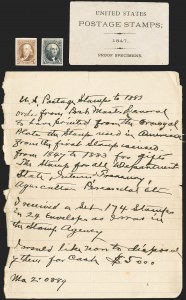 UNITED STATES
POSTAGE STAMPS;
1847.
PROOF SPECIMENS.
U.S. Postage Stamps to 1883
only, from Post Master General
Plate the Stamp used in America
from the first Stamp issued
From 1847 to 1883 for
The Stamp for all Department
State Interior Treasury
Agriculture
I received a Set 174 Stamps
in 29 Envelopes as I was in
the Stamp Agency
I would like now to dispose of
them for Cash $5000